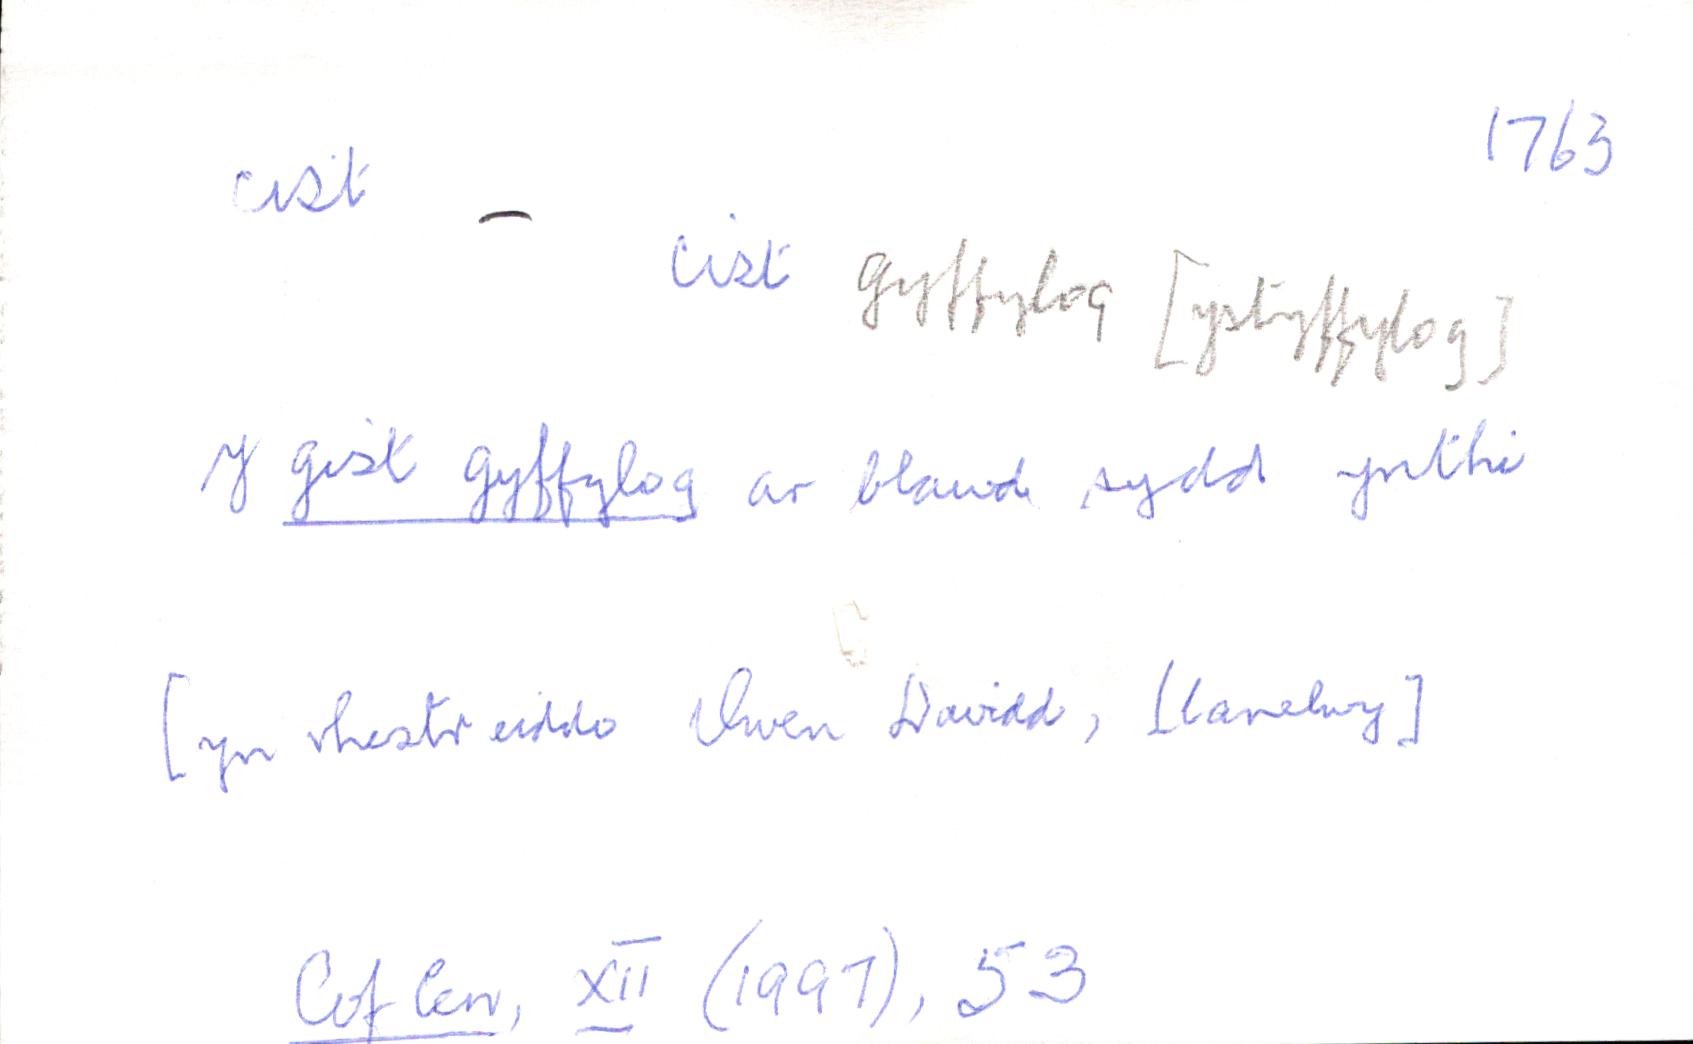 1763
cist –
cist gyffylog [ystyffylog]
Y gist gyffylog ar blawd sydd ynthi
[yn rhestr eiddo Owen Davidd, Llanelwy]
Cof Cen, XII (1997), 53